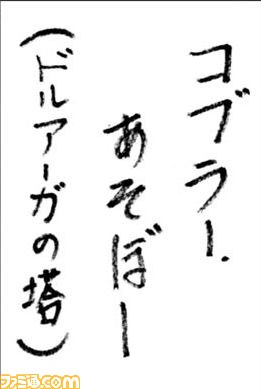 コブラー.
あそぼー
（ドルアーガの塔）
ファミ通.com